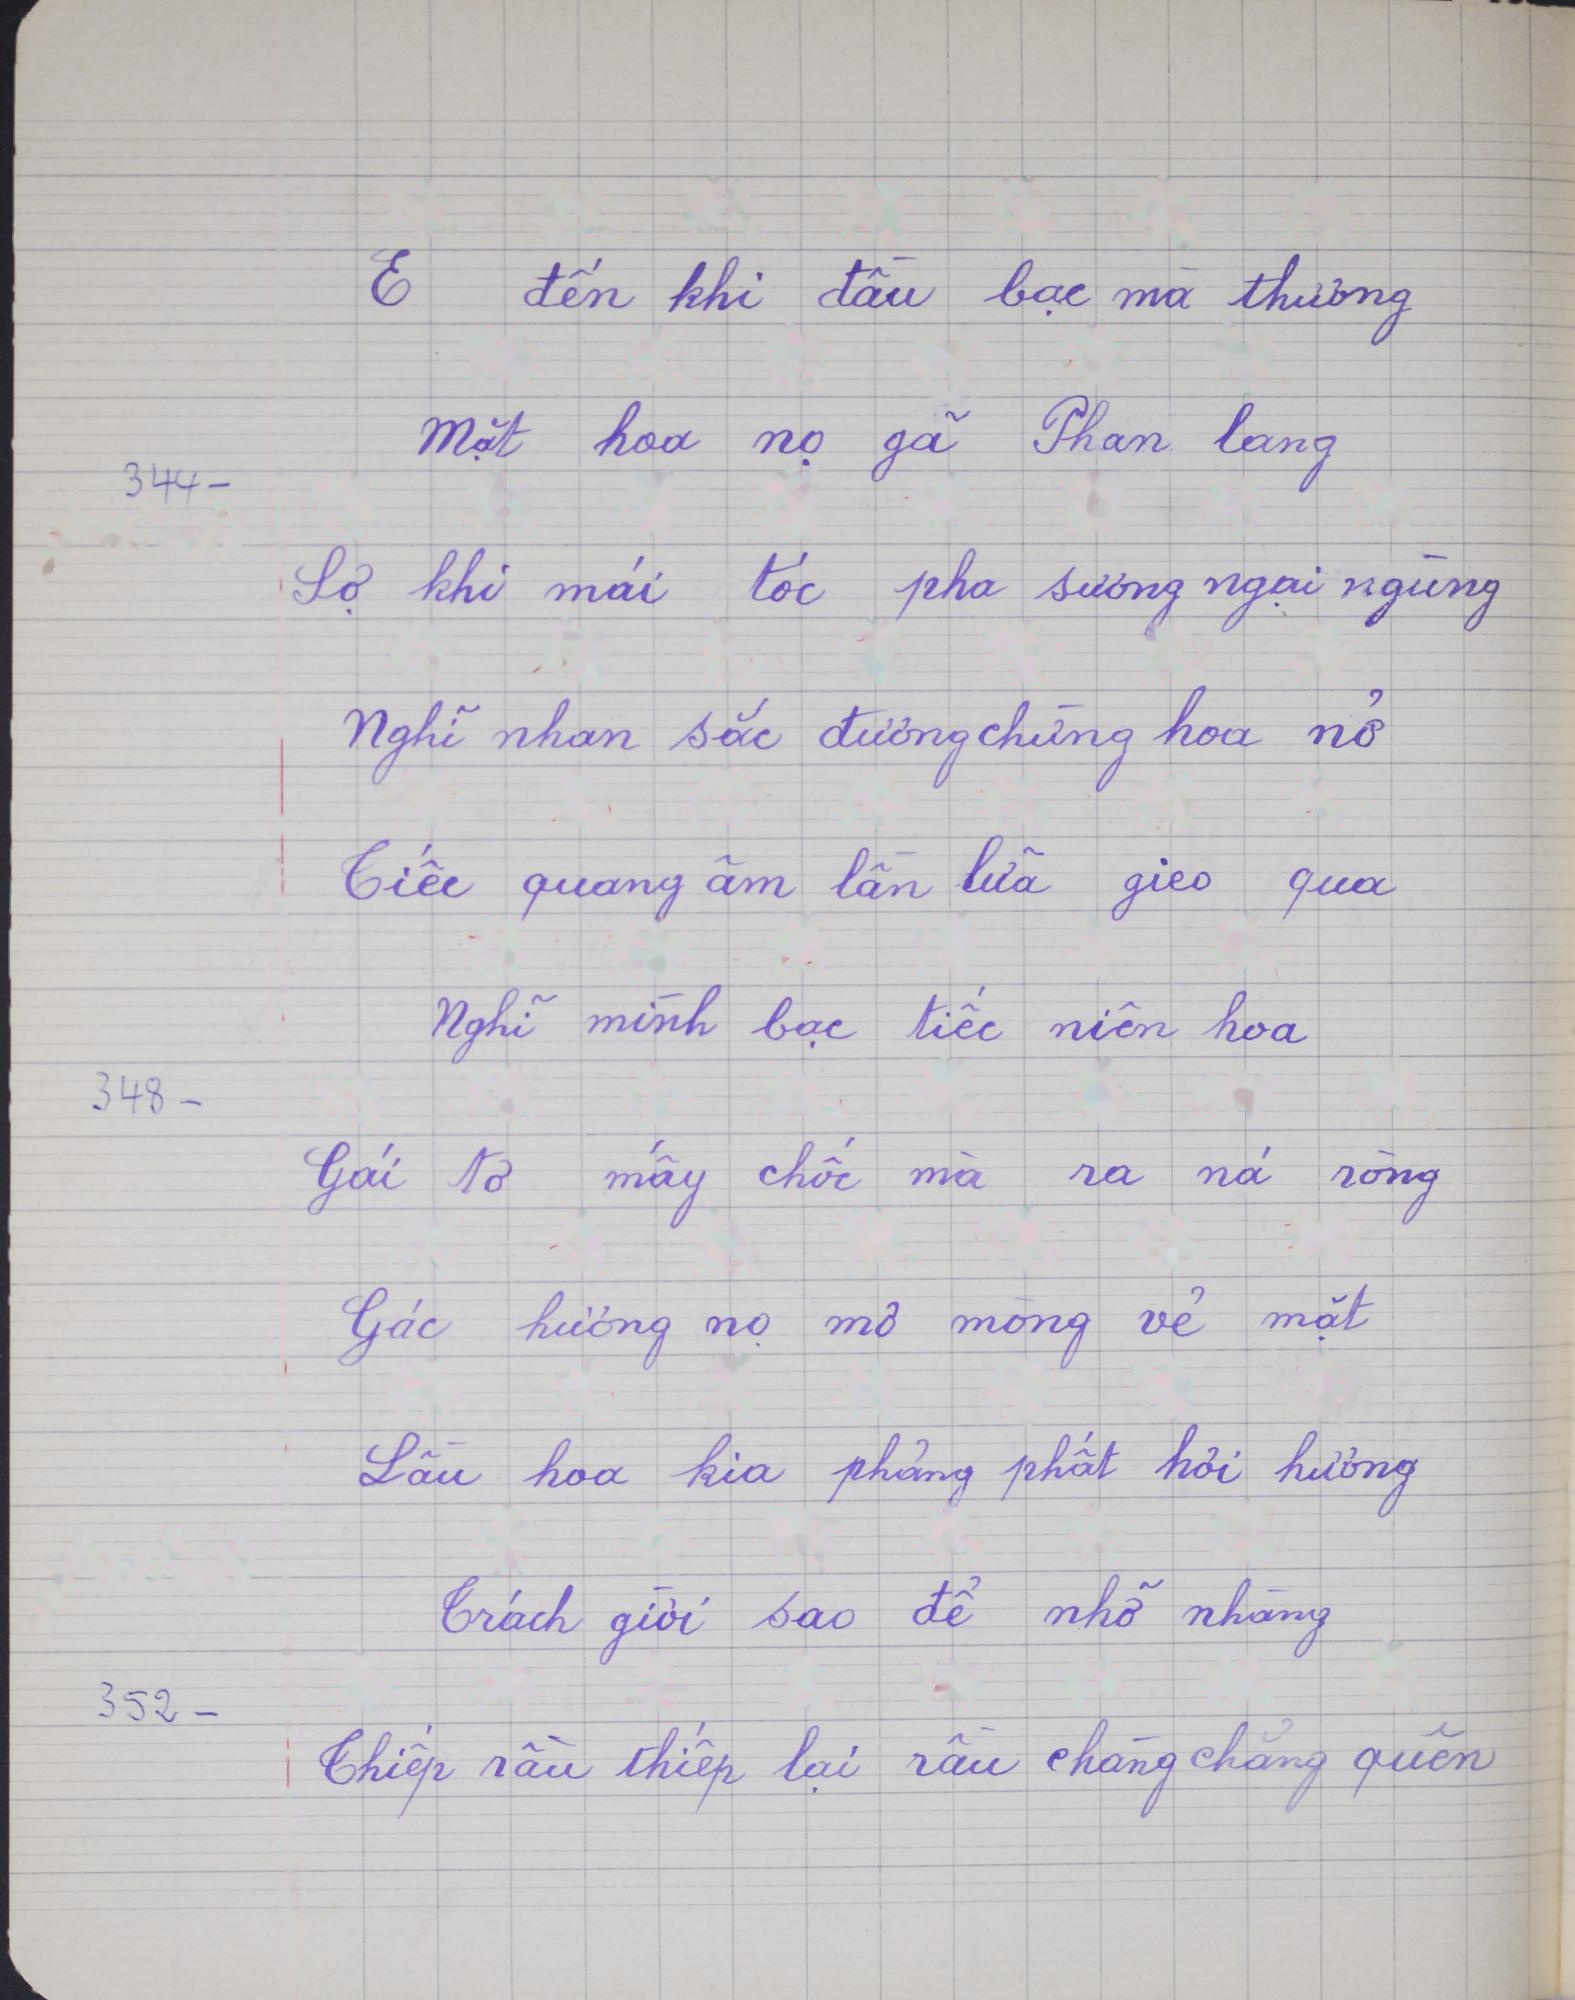 E đến khi đầu bạc mà thương
Mặt hoa nọ gã Phan lang
344-
Sợ khi mái tóc pha sương ngại ngùng
Nghĩ nhan sắc đương chừng hoa nở
Tiếc quang âm lần lữa gieo qua
Nghĩ mình bạc tiếc niên hoa
348-
Gái tơ mấy chốc mà ra ná ròng
Gác hương nọ mơ mòng vẻ mặt
Lầu hoa kia phảng phất hơi hương
Trách giời sao để nhỡ nhàng
352-
Thiếp rầu thiếp lại rầu chàng chẳng quên